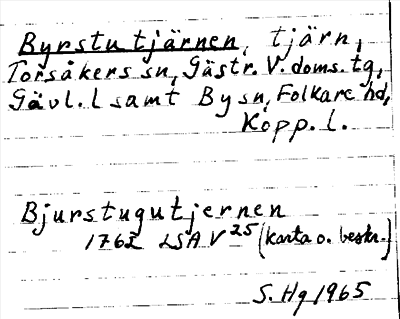 Byrstutjärnen, tjärn,
Torsåkers sn, Gästr. V. doms. tg,
Gävl. l samt By sn, Folkare hd,
Kopp. l.
Bjurstugutjernen
1762 LSA V 25 (karta o. beskr.)
S. Hg 1965